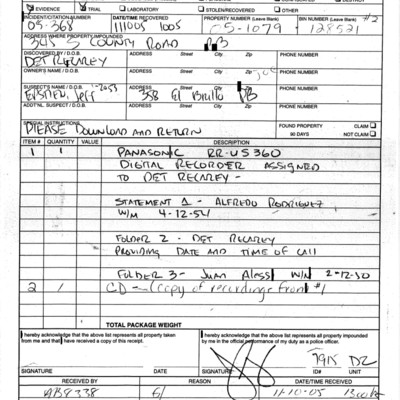 EVIDENCE TRIAL LABORATORY STOLEN/RECOVERED OTHER
INCIDENT/CITATION NUMBER DATE/TIME RECOVERED PROPERTY NUMBER (Leave Blank) BIN NUMBER (Leave Blank) #2
05-368 111005 1005 05-1079 128521
ADDRESS WHERE PROPERTY IMPOUNDED
345 S COUNTY ROAD PB
DISCOVERED BY / D.O.B. ADDRESS Street City Zip PHONE NUMBER
DET RECAREY
OWNER'S NAME / D.O.B. ADDRESS Street City Zip PHONE NUMBER
SUSPECT'S NAME / D.O.B. ADDRESS Street City Zip PHONE NUMBER
Epstein, Jeff 1-2053 358 El Brillo PB
ADDTNL SUSPECT / D.O.B. ADDRESS Street City Zip PHONE NUMBER
SPECIAL INSTRUCTIONS FOUND PROPERTY CLAIM
PLEASE DOWNLOAD AND RETURN 90 DAYS NOT CLAIM
ITEM # QUANTITY VALUE DESCRIPTION
1 1 PANASONIC RR-US360
DIGITAL RECORDER ASSIGNED
TO DET RECAREY -
STATEMENT 1 - ALFREDO RODRIGUEZ
W/M 4-12-54
FOLDER 2 - DET RECAREY
PROVIDING DATE AND TIME OF CALL
FOLDER 3 - Juan Alessi W/M 2-12-50
2 1 CD - (copy of recordings from #1
TOTAL PACKAGE WEIGHT
I hereby acknowledge that the above list represents all property taken
from me and that I have received a copy of this receipt.
I hereby acknowledge that the above list represents all property impounded
by me in the official performance of my duty as a police officer.
7915 D2
SIGNATURE DATE SIGNATURE ID# UNIT
RECEIVED BY REASON DATE/TIME RECEIVED
11-10-05